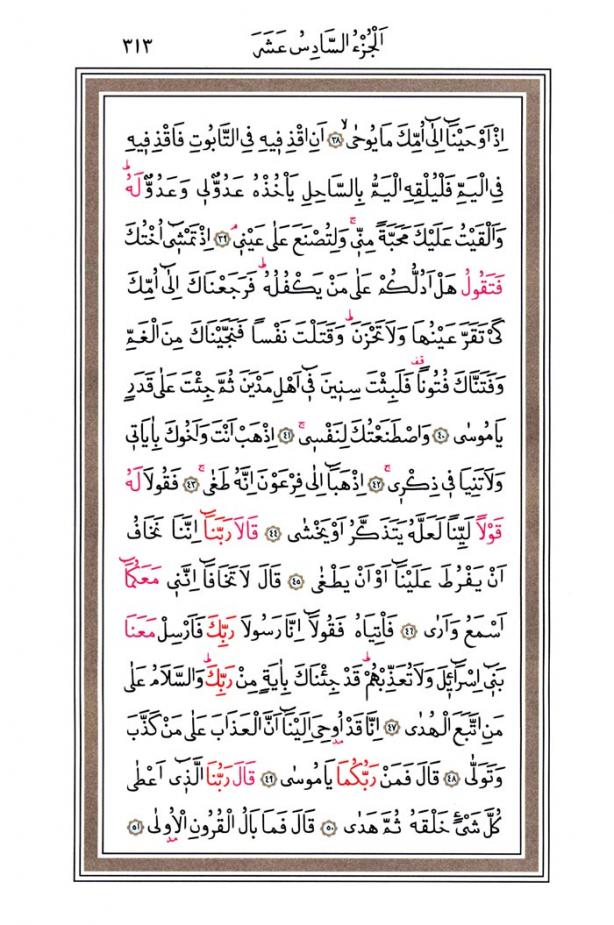 اَلْجُزْءُ السَّادِسُ عَشَرَ ٣١٣
اِذْ اَوْحَيْنَٓا اِلٰٓى اُمِّكَ مَا يُوحٰىۙ ﴿٣٨﴾ اَنِ اقْذِفٖيهِ فِي التَّابُوتِ فَاقْذِفٖيهِ
فِي الْيَمِّ فَلْيُلْقِهِ الْيَمُّ بِالسَّاحِلِ يَأْخُذْهُ عَدُوٌّ لٖي وَعَدُوٌّ لَهُۜ
وَاَلْقَيْتُ عَلَيْكَ مَحَبَّةً مِنّٖيۚ وَلِتُصْنَعَ عَلٰى عَيْنٖيۢ ﴿٣٩﴾ اِذْ تَمْشٖٓي اُخْتُكَ
فَتَقُولُ هَلْ اَدُلُّكُمْ عَلٰى مَنْ يَكْفُلُهُۜ فَرَجَعْنَاكَ اِلٰٓى اُمِّكَ
كَيْ تَقَرَّ عَيْنُهَا وَلَا تَحْزَنَۜ وَقَتَلْتَ نَفْساً فَنَجَّيْنَاكَ مِنَ الْغَمِّ
وَفَتَنَّاكَ فُتُوناً۠ فَلَبِثْتَ سِنٖينَ فٖٓي اَهْلِ مَدْيَنَ ثُمَّ جِئْتَ عَلٰى قَدَرٍ
يَا مُوسٰى ﴿٤٠﴾ وَاصْطَنَعْتُكَ لِنَفْسٖيۚ ﴿٤١﴾ اِذْهَبْ اَنْتَ وَاَخُوكَ بِاٰيَاتٖي
وَلَا تَنِيَا فٖي ذِكْرٖيۚ ﴿٤٢﴾ اِذْهَبَٓا اِلٰى فِرْعَوْنَ اِنَّهُ طَغٰىۚ ﴿٤٣﴾ فَقُولَا لَهُ
قَوْلاً لَيِّناً لَعَلَّهُ يَتَذَكَّرُ اَوْ يَخْشٰى ﴿٤٤﴾ قَالَا رَبَّنَٓا اِنَّنَا نَخَافُ
اَنْ يَفْرُطَ عَلَيْنَٓا اَوْ اَنْ يَطْغٰى ﴿٤٥﴾ قَالَ لَا تَخَافَٓا اِنَّنٖي مَعَكُمَٓا
اَسْمَعُ وَاَرٰى ﴿٤٦﴾ فَأْتِيَاهُ فَقُولَٓا اِنَّا رَسُولَا رَبِّكَ فَاَرْسِلْ مَعَنَا
بَنٖٓي اِسْرَٓائٖلَ وَلَا تُعَذِّبْهُمْۜ قَدْ جِئْنَاكَ بِاٰيَةٍ مِنْ رَبِّكَۜ وَالسَّلَامُ عَلٰى
مَنِ اتَّبَعَ الْهُدٰى ﴿٤٧﴾ اِنَّا قَدْ اُوحِيَ اِلَيْنَٓا اَنَّ الْعَذَابَ عَلٰى مَنْ كَذَّبَ
وَتَوَلّٰى ﴿٤٨﴾ قَالَ فَمَنْ رَبُّكُمَا يَا مُوسٰى ﴿٤٩﴾ قَالَ رَبُّنَا الَّذٖٓي اَعْطٰى
كُلَّ شَيْءٍ خَلْقَهُ ثُمَّ هَدٰى ﴿٥٠﴾ قَالَ فَمَا بَالُ الْقُرُونِ الْاُولٰى ﴿٥١﴾